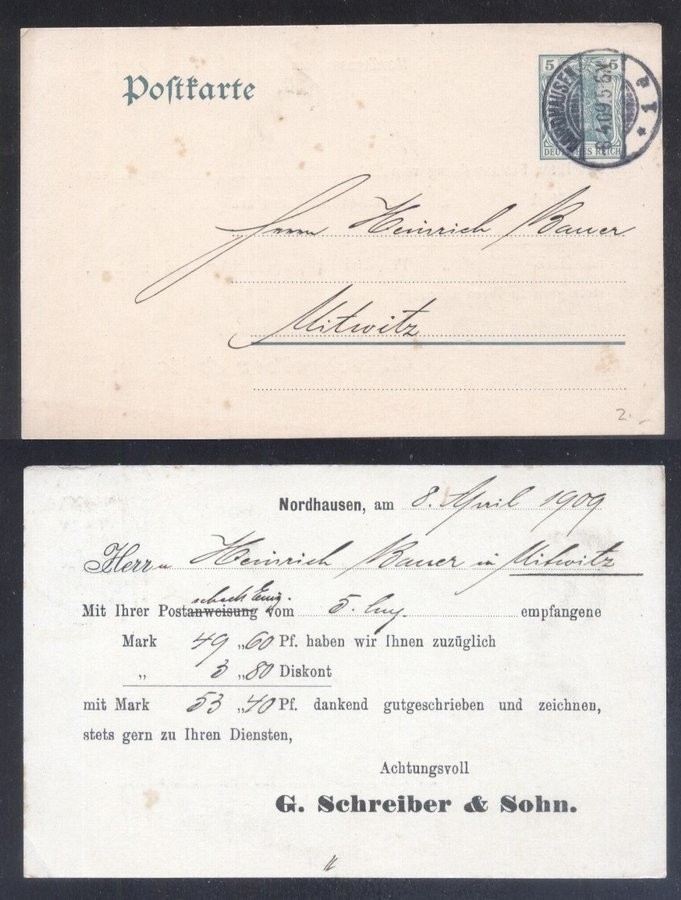 Postkarte
5 5
NORDHAUSEN
8.4.09. 5-6N.
* 1 a
DEUTSCHES REICH
Herrn Heinrich Bauer
Mitwitz
2.-
Nordhausen, am 8. April 1909
Herrn Heinrich Bauer in Mitwitz
Mit Ihrer Postanweisung vom 5. empfangene
Mark 49 „60 Pf. haben wir Ihnen zuzüglich
„ 3 „80 Diskont
mit Mark 53 „40 Pf. dankend gutgeschrieben und zeichnen,
stets gern zu Ihren Diensten,
Achtungsvoll
G. Schreiber & Sohn.